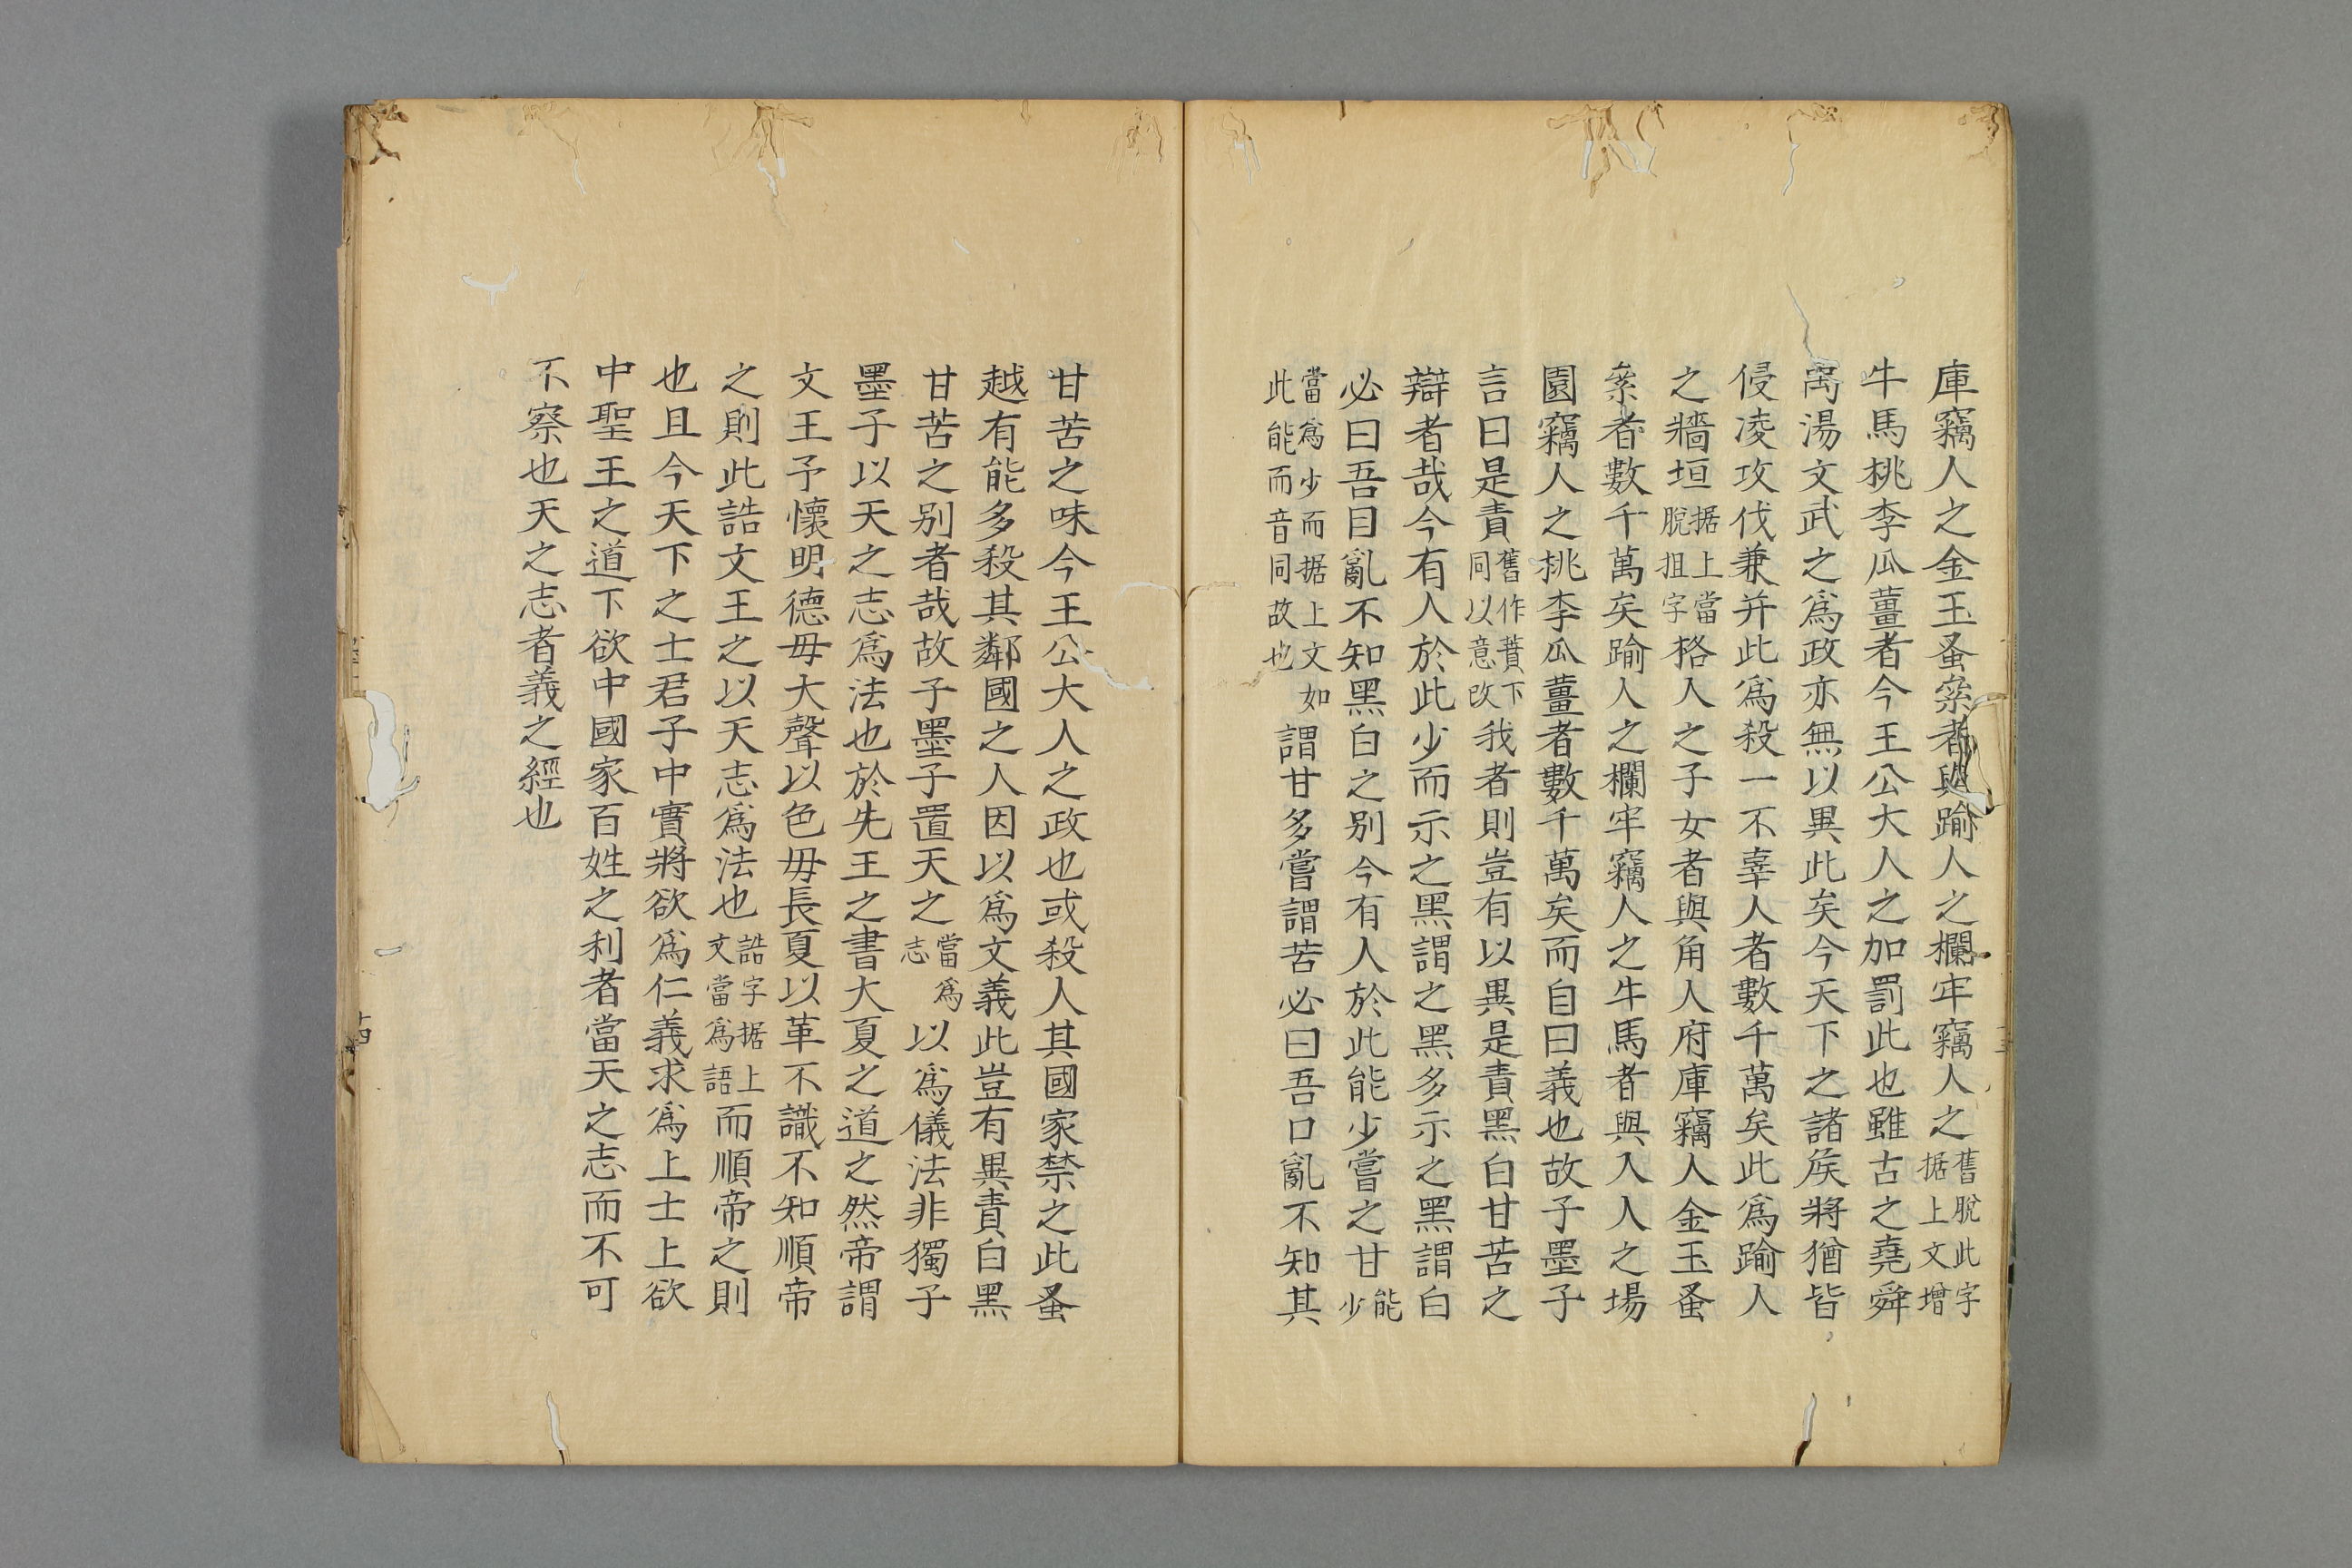 庫竊人之金玉蚤絫者與踰人之欄牢竊人之舊脫此字据上文增
牛馬桃李瓜薑者今王公大人之加罰此也雖古之堯舜
禹湯文武之爲政亦無以異此矣今天下之諸矦將猶皆
侵凌攻伐兼并此爲殺一不辜人者數千萬矣此爲踰人
之牆垣据上當脫抯字格人之子女者與角人府庫竊人金玉蚤
絫者數千萬矣踰人之欄牢竊人之牛馬者與入人之場
園竊人之桃李瓜薑者數千萬矣而自曰義也故子墨子
言曰是責舊作蕡下同以意改我者則豈有以異是責黑白甘苦之
辯者哉今有人於此少而示之黑謂之黑多示之黑謂白
必曰吾目亂不知黑白之别今有人於此能少嘗之甘能少
當爲少而据上文如此能而音同故也謂甘多嘗謂苦必曰吾口亂不知其
甘苦之味今王公大人之政也或殺人其國家禁之此蚤
越有能多殺其鄰國之人因以爲文義此豈有異責白黑
甘苦之别者哉故子墨子置天之當爲志以爲儀法非獨子
墨子以天之志爲法也於先王之書大夏之道之然帝謂
文王予懷明德毋大聲以色毋長夏以革不識不知順帝
之則此誥文王之以天志爲法也誥字据上文當爲語而順帝之則
也且今天下之士君子中實將欲爲仁義求爲上士上欲
中聖王之道下欲中國家百姓之利者當天之志而不可
不察也天之志者義之經也
十四